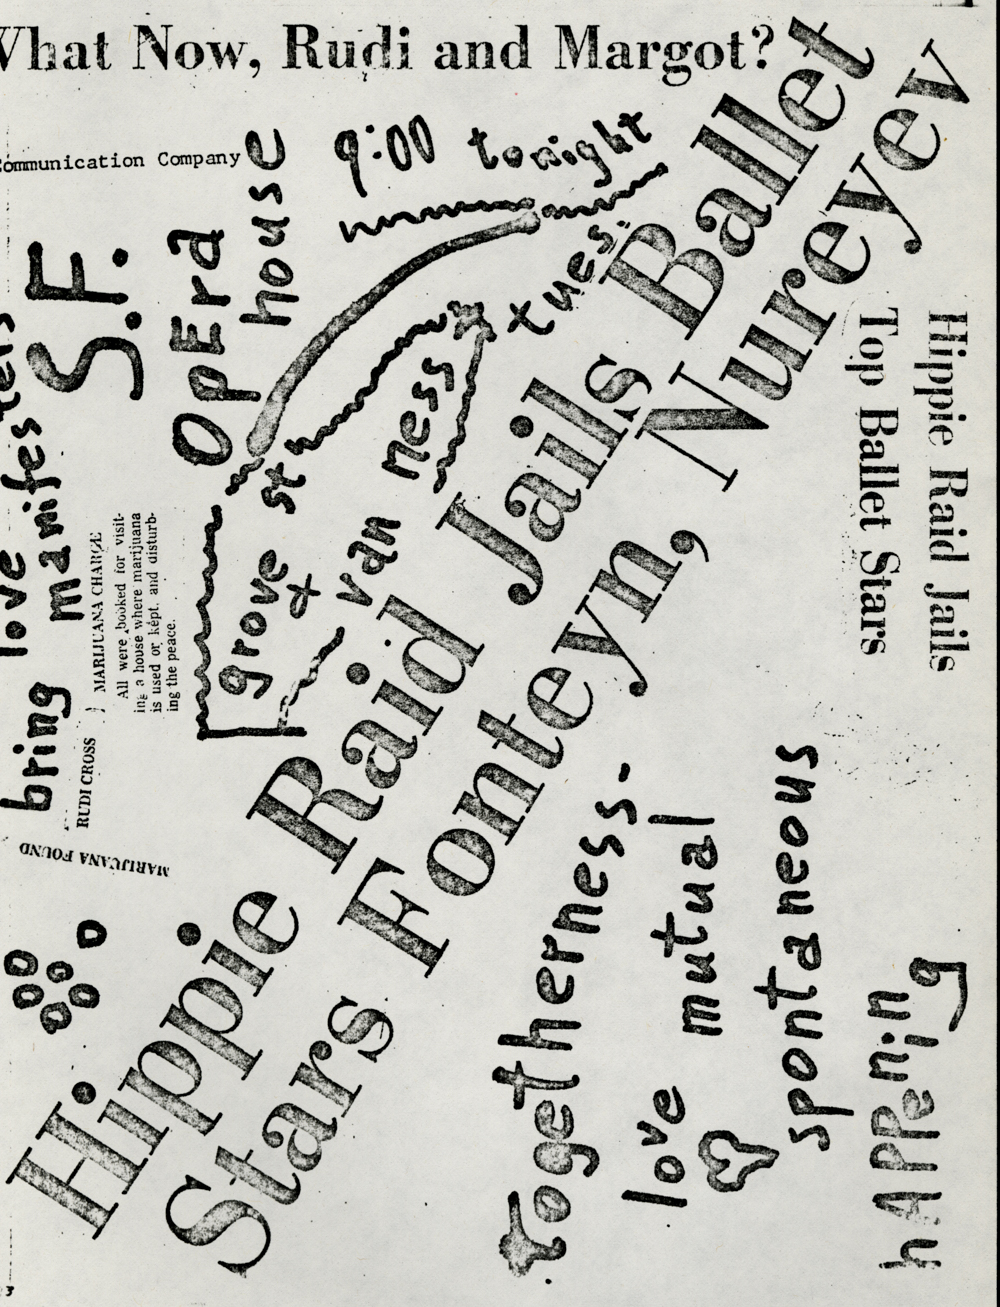 What Now, Rudi and Margot?
Communication Company
9:00 tonight
tues.
OpErA
house
S.F.
grove st
+
van ness
bring love
manifes
RUDI CROSS
MARIJUANA CHARGE
All were booked for visit-
ing a house where marijuana
is used or kept, and disturb-
ing the peace.
MARIJUANA FOUND
Hippie Raid Jails Ballet
Stars Fonteyn, Nureyev
Hippie Raid Jails
Top Ballet Stars
Togetherness-
love mutual
spontaneous
hAPPening
3